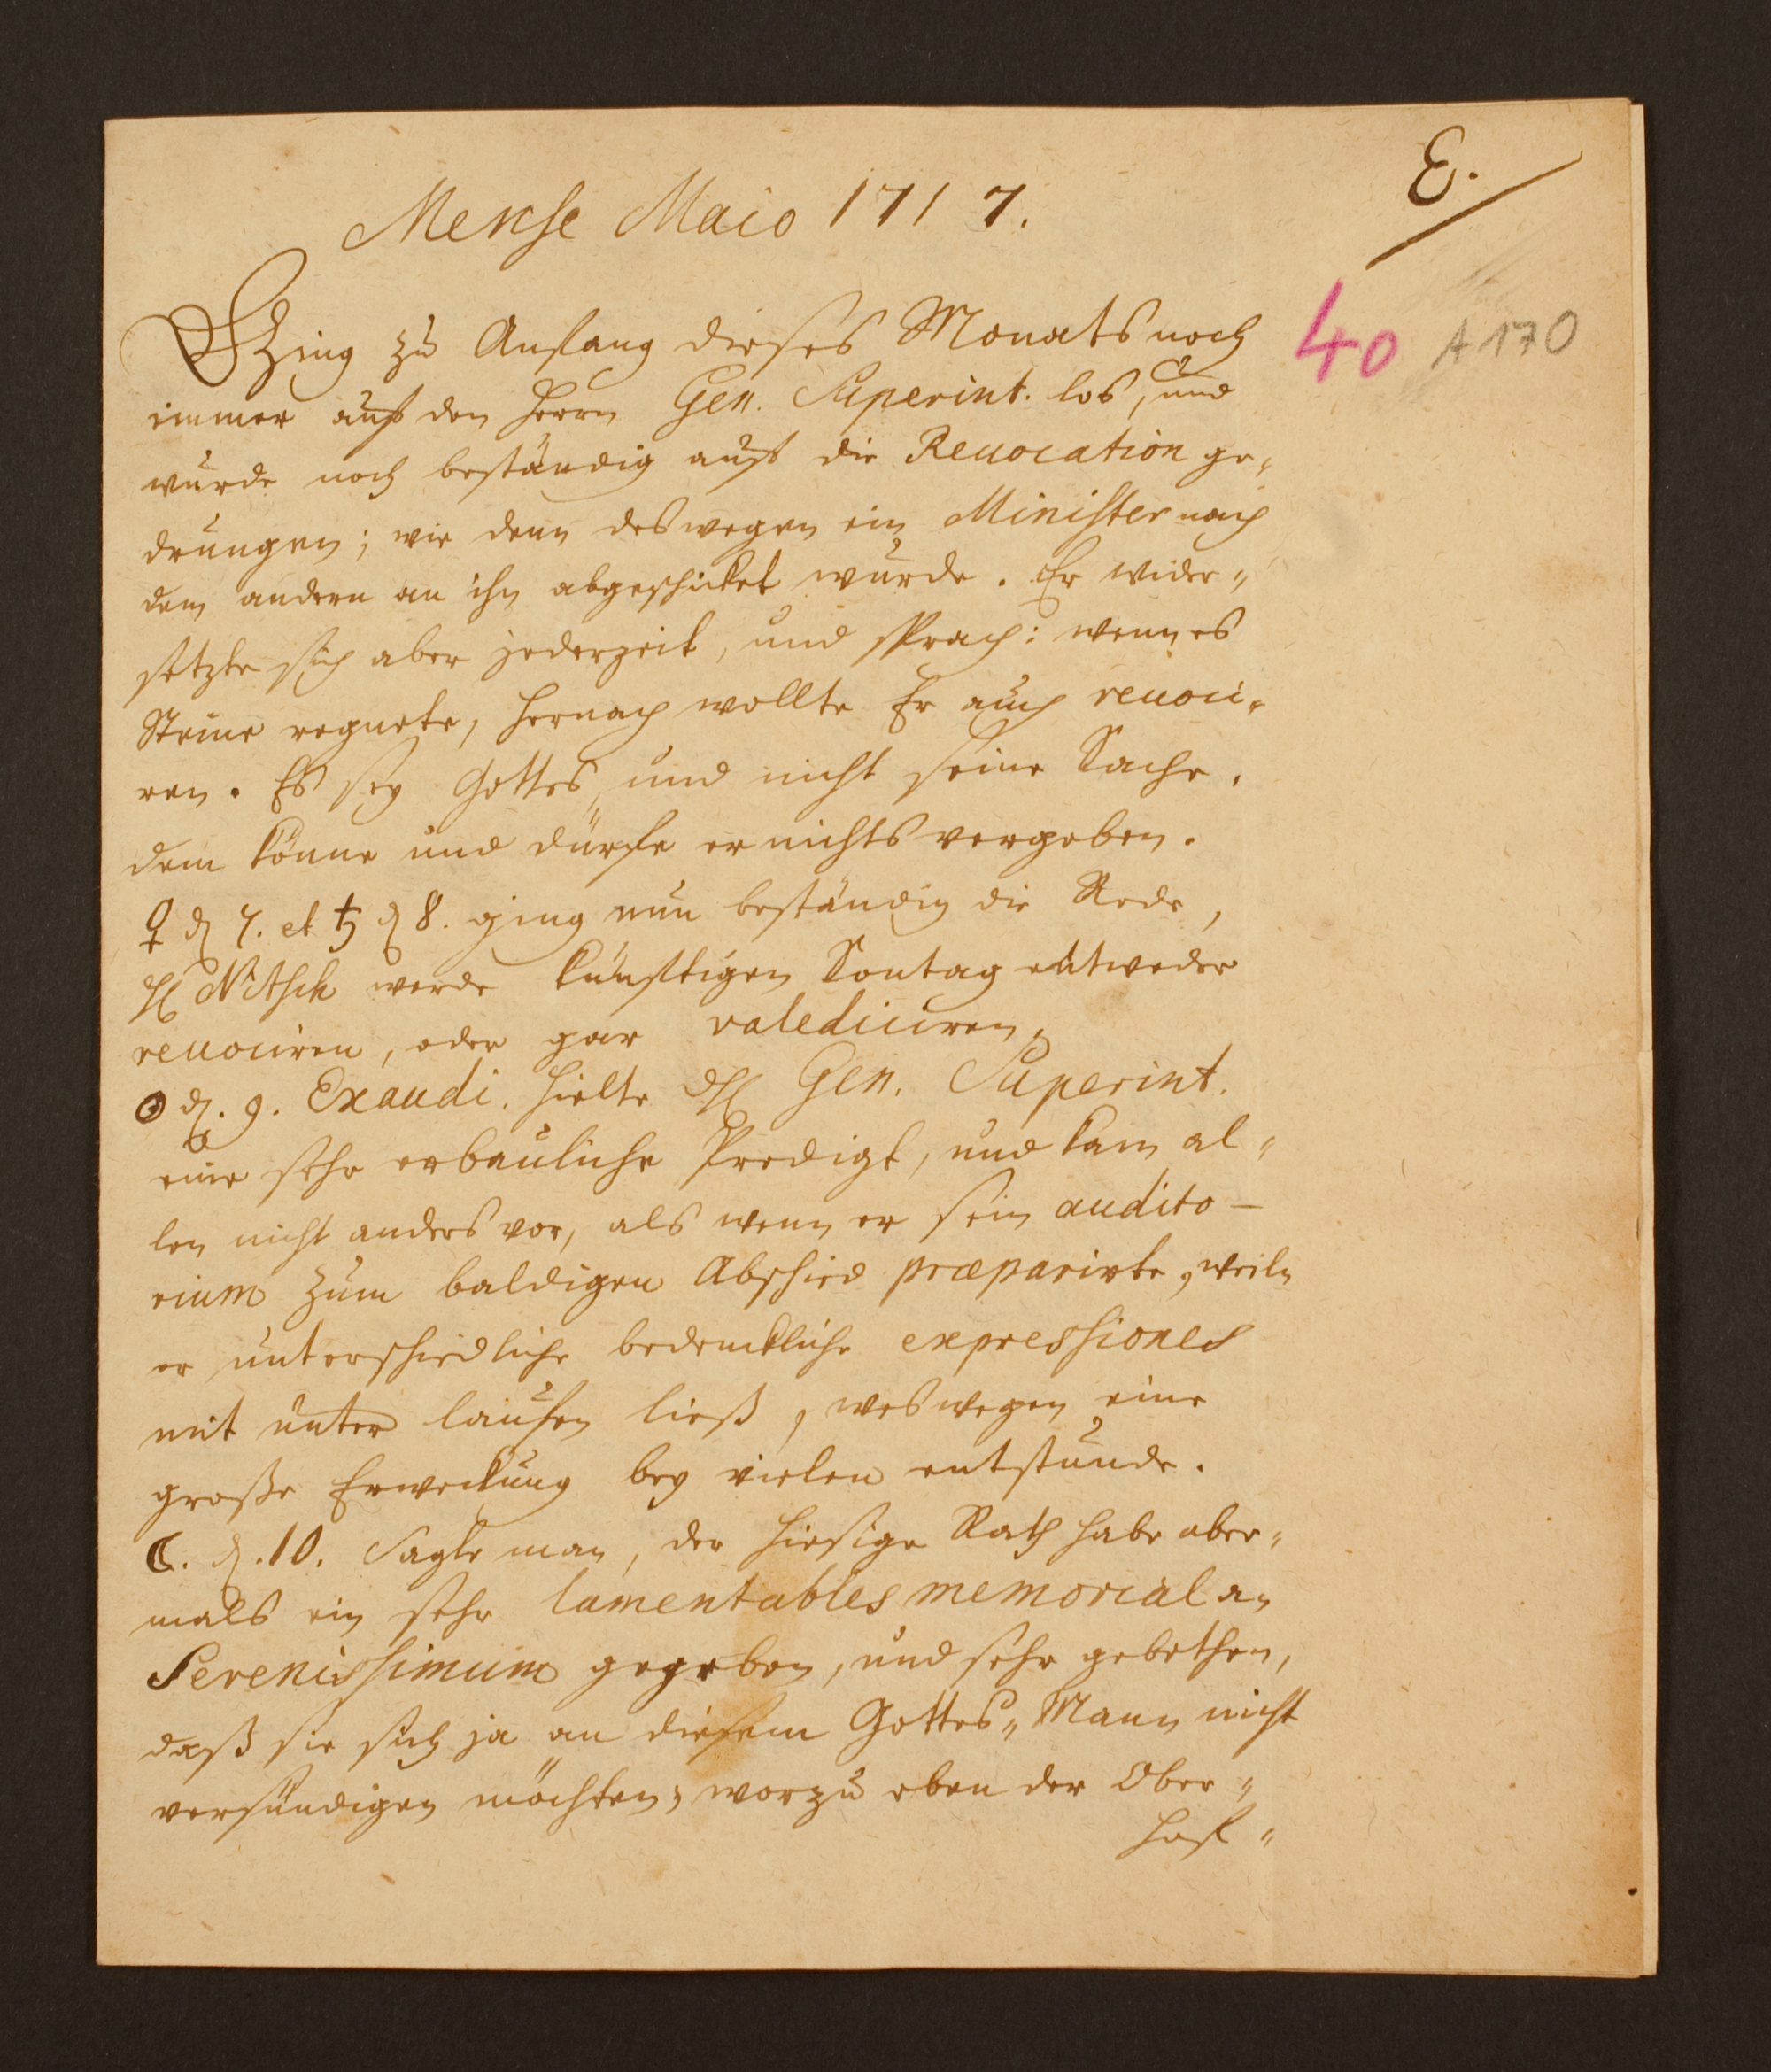 E.
Mense Maio 1717.
40 A 170
Gieng zu Anfang dieses Monats noch
immer auf den Herrn Gen. Superint. los, und
wurde noch beständig auf die Revocation ge„
drungen; wie denn deswegen ein Minister nach
dem andern an ihn abgeschicket wurde. Er wider„
setzte sich aber jederzeit, und sprach: wenn es
Steine regnete, hernach wollte Er auch revoci„
ren. Es sey Gottes, und nicht seine Sache,
dem könne und dürfe er nichts vergeben.
♀ d 7. et ♄ d 8. ging nun beständig die Rede,
H Nitsch werde künfftigen Sontag entweder
revociren, oder gar valediciren.
☉ d. 9. Exaudi. hielte d H Gen. Superint.
eine sehr erbauliche Predigt, und kam al„
len nicht anders vor, als wenn er sein audito-
rium zum baldigen Abschied præparirte, weiln
er unterschiedliche bedenckliche expressiones
mit unter lauffen ließ, weswegen eine
große Erweckung bey vielen entstunde.
☾. d. 10. Sagte man, der hiesige Rath habe aber„
mals ein sehr lamentables memorial an
Serenissimum gegeben, und sehr gebethen,
daß sie sich ja an diesem Gottes„Mann nicht
versündigen möchten, worzu eben der Ober„
hof„